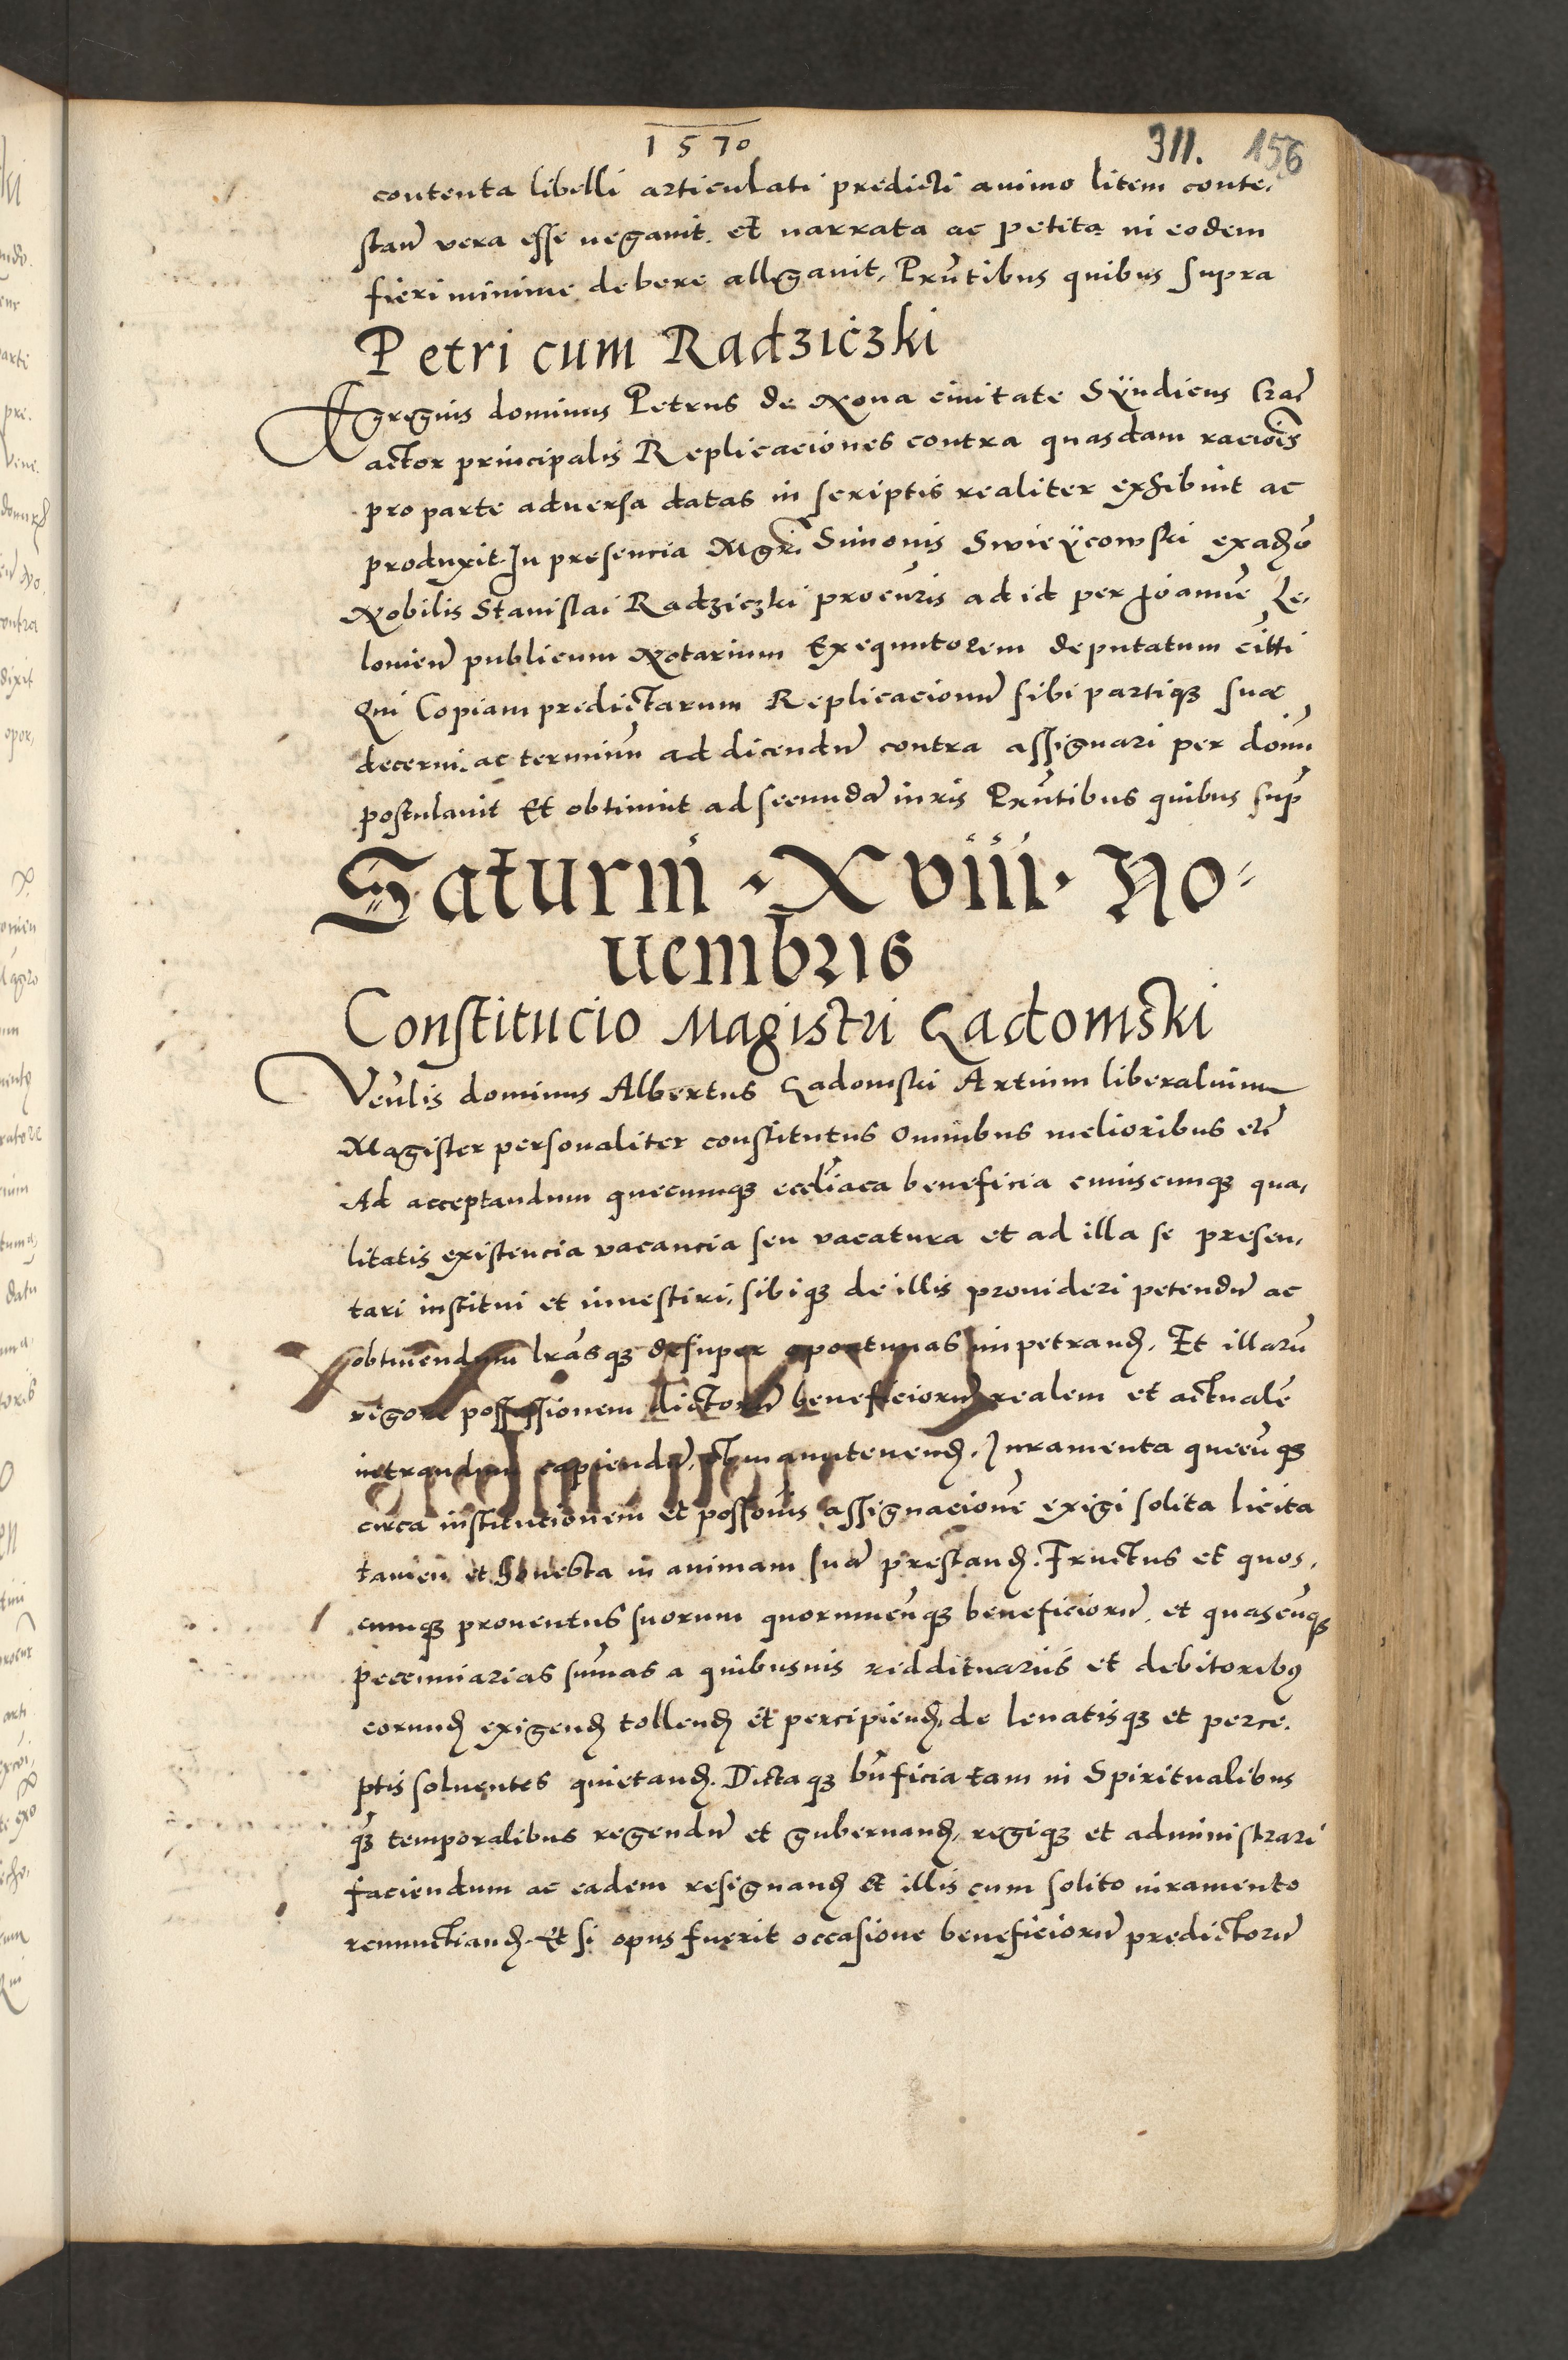 1570
311. 156
contenta libelli articulati predicti animo litem conte,
stan̄ vera esse negauit. et narrata ac petita in eodem
fieri minime debere allegauit. Prn̄tibus quibus supra
Petri cum Radziczki
Egregius dominus Petrus de Noua ciuitate Sÿndicus Cras̄
actor principalis Replicaciones contra quasdam raciōēs
pro parte aduersa datas in scriptis realiter exhibuit ac
produxit. In presencia Mgri Simonis Swieÿcowski
Nobilis Stanislai Radziczki procūris ad id per Joannē Le,
louien̄ publicum Notarium Exequutorem deputatum citti
Qui Copiam predictarum Replicacionū sibi partiqꝫ suæ
decerni. ac terminū ad dicendū contra assignari per domū
postulauit Et obtinuit ad secundā iuris Prn̄tibus quibus sup̄
Saturni . Xviii . No-
uembris
Constitucio Magistri Ladomski
Ven̄lis dominus Albertus Ladomski Artium liberalium
Magister personaliter constitutus Omnibus melioribus
Ad acceptandum quecumqꝫ eccl̄iaca beneficia cuiuscumqꝫ qua,
litatis existencia vacancia seu vacatura et ad illa se presen,
tari institui et inuestiri. sibiqꝫ de illis prouideri petendū ac
obtinendum lrāsqꝫ desuper oportunas impetrand̄. Et illarū
vigore possessionem dictorū beneficiorū realem et actualē
intrandum capiendū. et manutenend̄. Juramenta quecūqꝫ
circa institutionem et possōnis assignacionē exigi solita licita
tamen et honesta in animam suā prestand̄. Fructus et quos,
cumqꝫ prouentus suorum quorumcūqꝫ beneficiorū. et quascūqꝫ
pecuniarias sum̄as a quibusuis reddituariis et debitoribꝰ
eorund̄ exigend̄ tollend̄ et percipiend̄. de leuatisqꝫ et perce.
ptis soluentes quietand̄. Dictaqꝫ bn̄ficia tam in Spiritualibus
qꝫ temporalibus regendū et gubernand̄. regiqꝫ et administrari
faciendum ac eadem resignand̄ et illis cum solito iuramento
renunctiand̄. Et si opus fuerit occasione beneficiorū predictorū